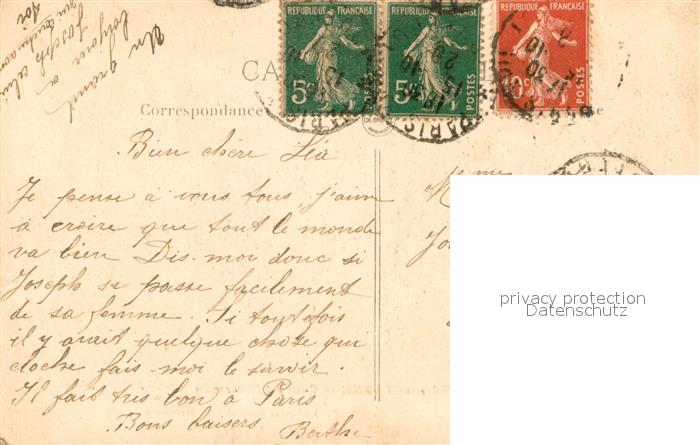 Un
grand
bonjour à
Joseph celui
RÉPUBLIQUE FRANÇAISE
5c
POSTES
RÉPUBLIQUE FRANÇAISE
5c
POSTES
RÉPUBLIQUE FRANÇAISE
10c
POSTES
PARIS
PARIS
CA
Correspondance
Bien chère Léa
Je pense à vous tous, j'aime
à croire que tout le monde
va bien Dis-moi donc si
Joseph se passe facilement
de sa femme. Si toutefois
il y avait quelque chose qui
cloche fais-moi le savoir.
Il fait très bon à Paris
Bons baisers Berthe
privacy protection
Datenschutz